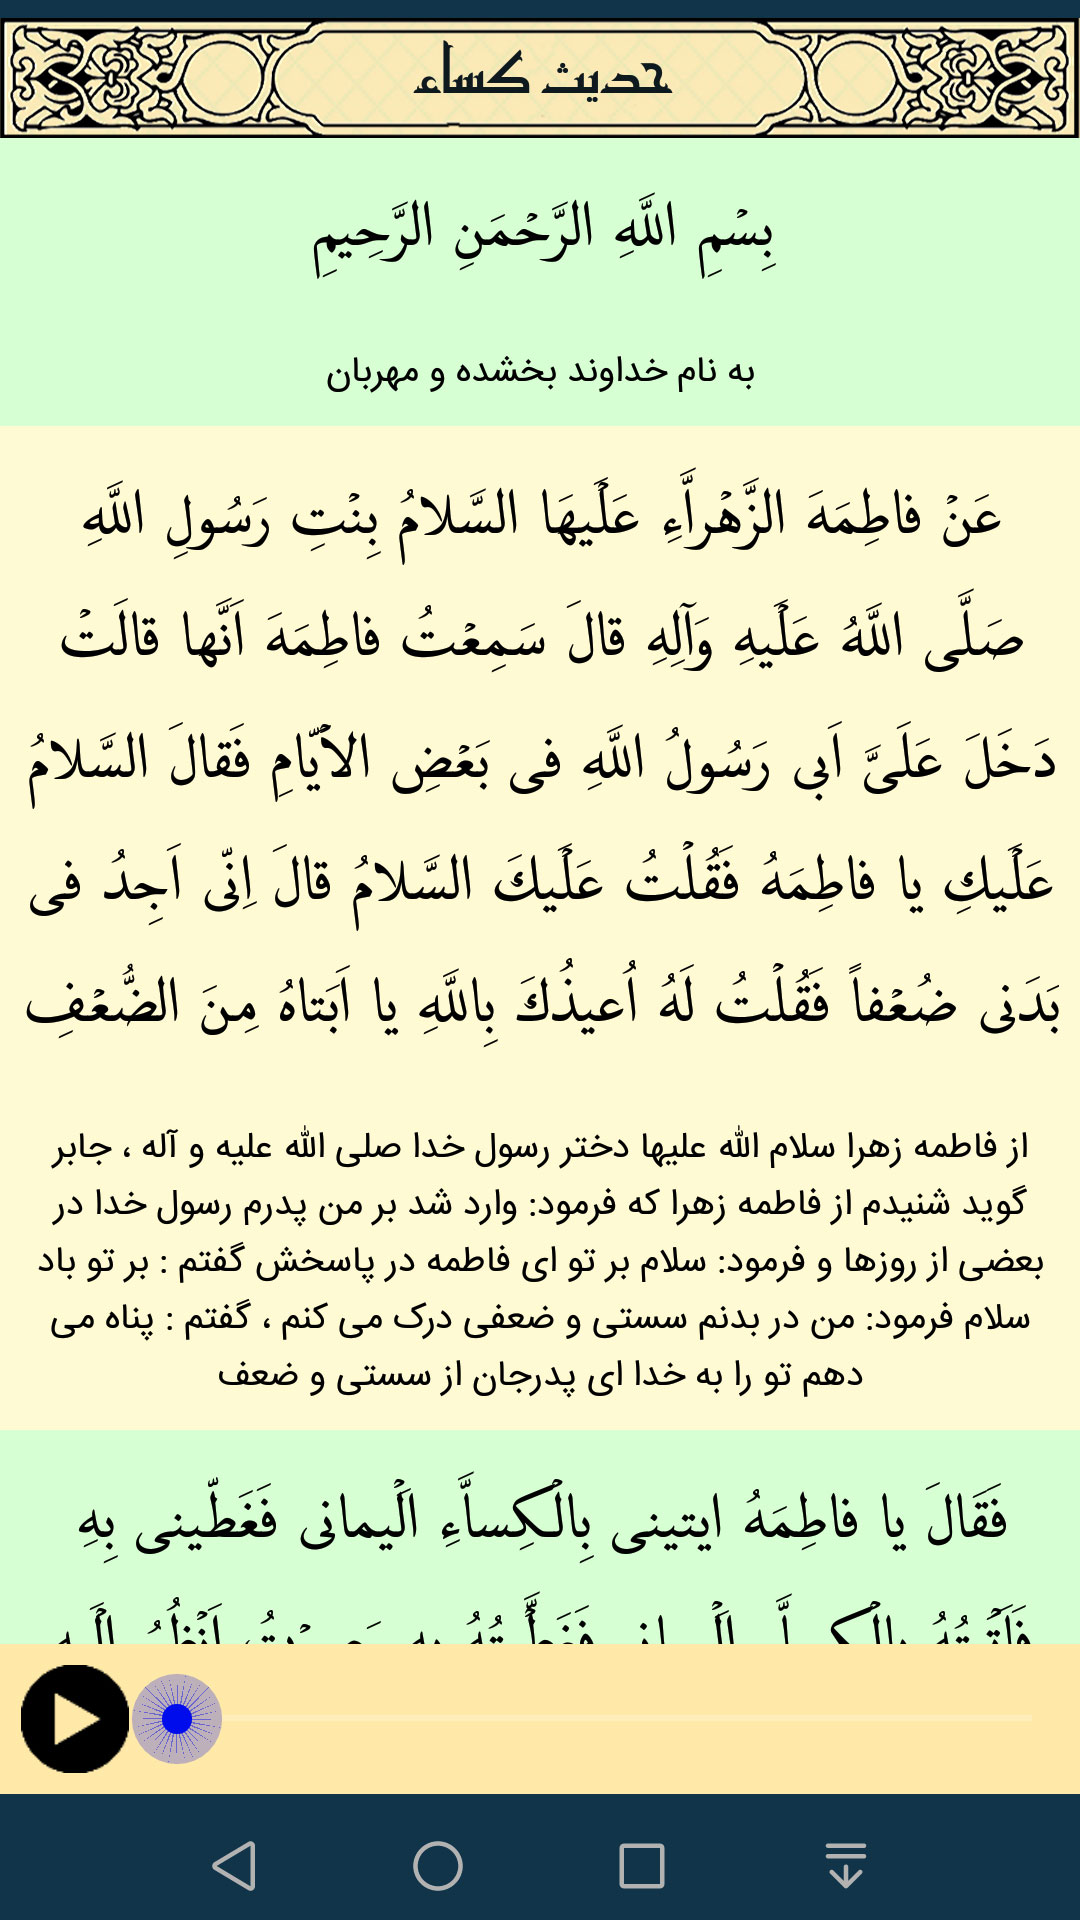 حدیث کساء
بِسْمِ اللَّهِ الرَّحْمَنِ الرَّحِیمِ
به نام خداوند بخشده و مهربان
عَنْ فاطِمَهَ الزَّهْراَّءِ عَلَیْهَا السَّلامُ بِنْتِ رَسُولِ اللَّهِ
صَلَّى اللَّهُ عَلَیْهِ وَآلِهِ قالَ سَمِعْتُ فاطِمَهَ اَنَّها قالَتْ
دَخَلَ عَلَىَّ اَبى رَسُولُ اللَّهِ فى بَعْضِ الاْیّامِ فَقالَ السَّلامُ
عَلَیْکِ یا فاطِمَهُ فَقُلْتُ عَلَیْکَ السَّلامُ قالَ اِنّى اَجِدُ فى
بَدَنى ضُعْفاً فَقُلْتُ لَهُ اُعیذُکَ بِاللَّهِ یا اَبَتاهُ مِنَ الضُّعْفِ
از فاطمه زهرا سلام الله علیها دختر رسول خدا صلی الله علیه و آله ، جابر
گوید شنیدم از فاطمه زهرا که فرمود: وارد شد بر من پدرم رسول خدا در
بعضی از روزها و فرمود: سلام بر تو ای فاطمه در پاسخش گفتم : بر تو باد
سلام فرمود: من در بدنم سستی و ضعفی درک می کنم ، گفتم : پناه می
دهم تو را به خدا ای پدرجان از سستی و ضعف
فَقَالَ یا فاطِمَهُ ایتینى بِالْکِساَّءِ الْیمانى فَغَطّینى بِهِ